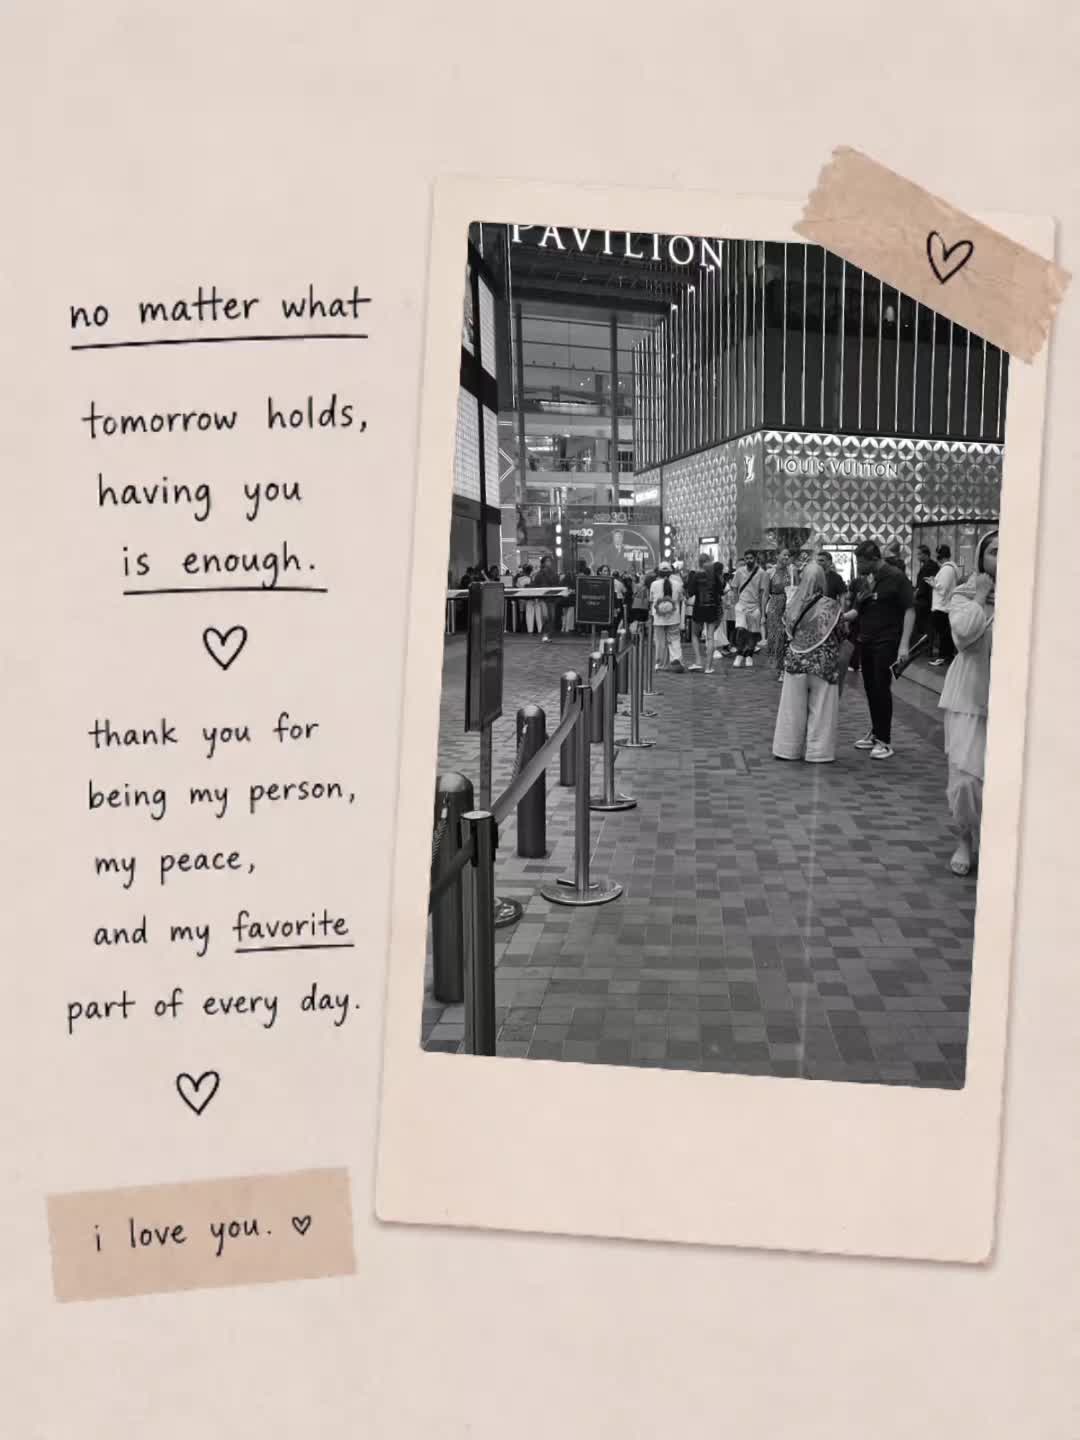 no matter what
tomorrow holds,
having you
is enough.
thank you for
being my person,
my peace,
and my favorite
part of every day.
i love you.
PAVILION
LOUIS VUITTON